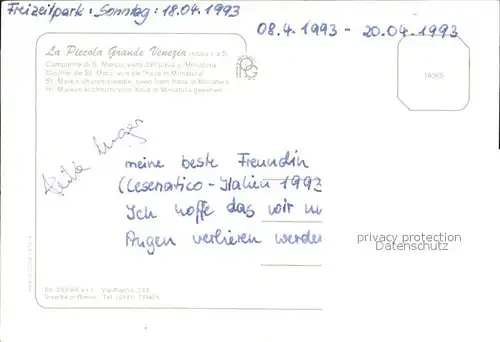 Freizeitpark : Sonntag : 18.04.1993
08.4.1993 - 20.04.1993
La Piccola Grande Venezia
Campanile di S. Marco, visto dall'Italia in Miniatura
Clocher de St. Marc, vue de "Italia in Miniatura"
St. Mark's church-steeple, seen from Italia in Miniatura
St. Markus Kirchturm vom Italia in Miniatura gesehen
meine beste Freundin
(Cesenatico - Italien 1993
Ich hoffe das wir u
Augen verlieren werde
privacy protection
DATENSCHUTZ
Ed. SEPAR s.r.l. Via Popilia, 239
Viserba di Rimini Tel. (0541)